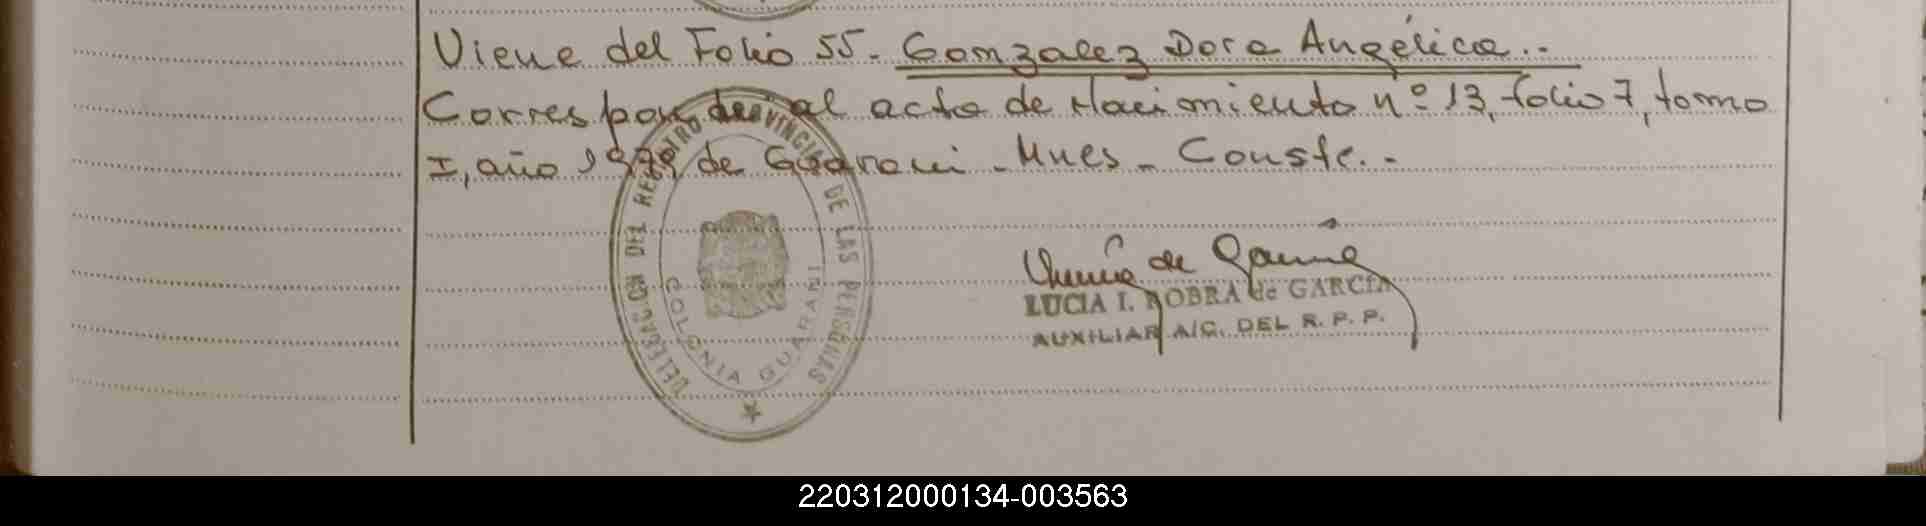 Viene del Folio 55 - Gonzalez Dora Angélica..-
Correspondeal acta de Nacimiento nº 13, folio 7, tomo
I, año 1979, de Guarani - Mnes - Conste..-
DELEGACION DEL REGISTRO PROVINCIAL DE LAS PERSONAS
COLONIA GUARANI
LUCIA I. DOBRA de GARCÍA
AUXILIAR A/C. DEL R. P. P.
220312000134-003563